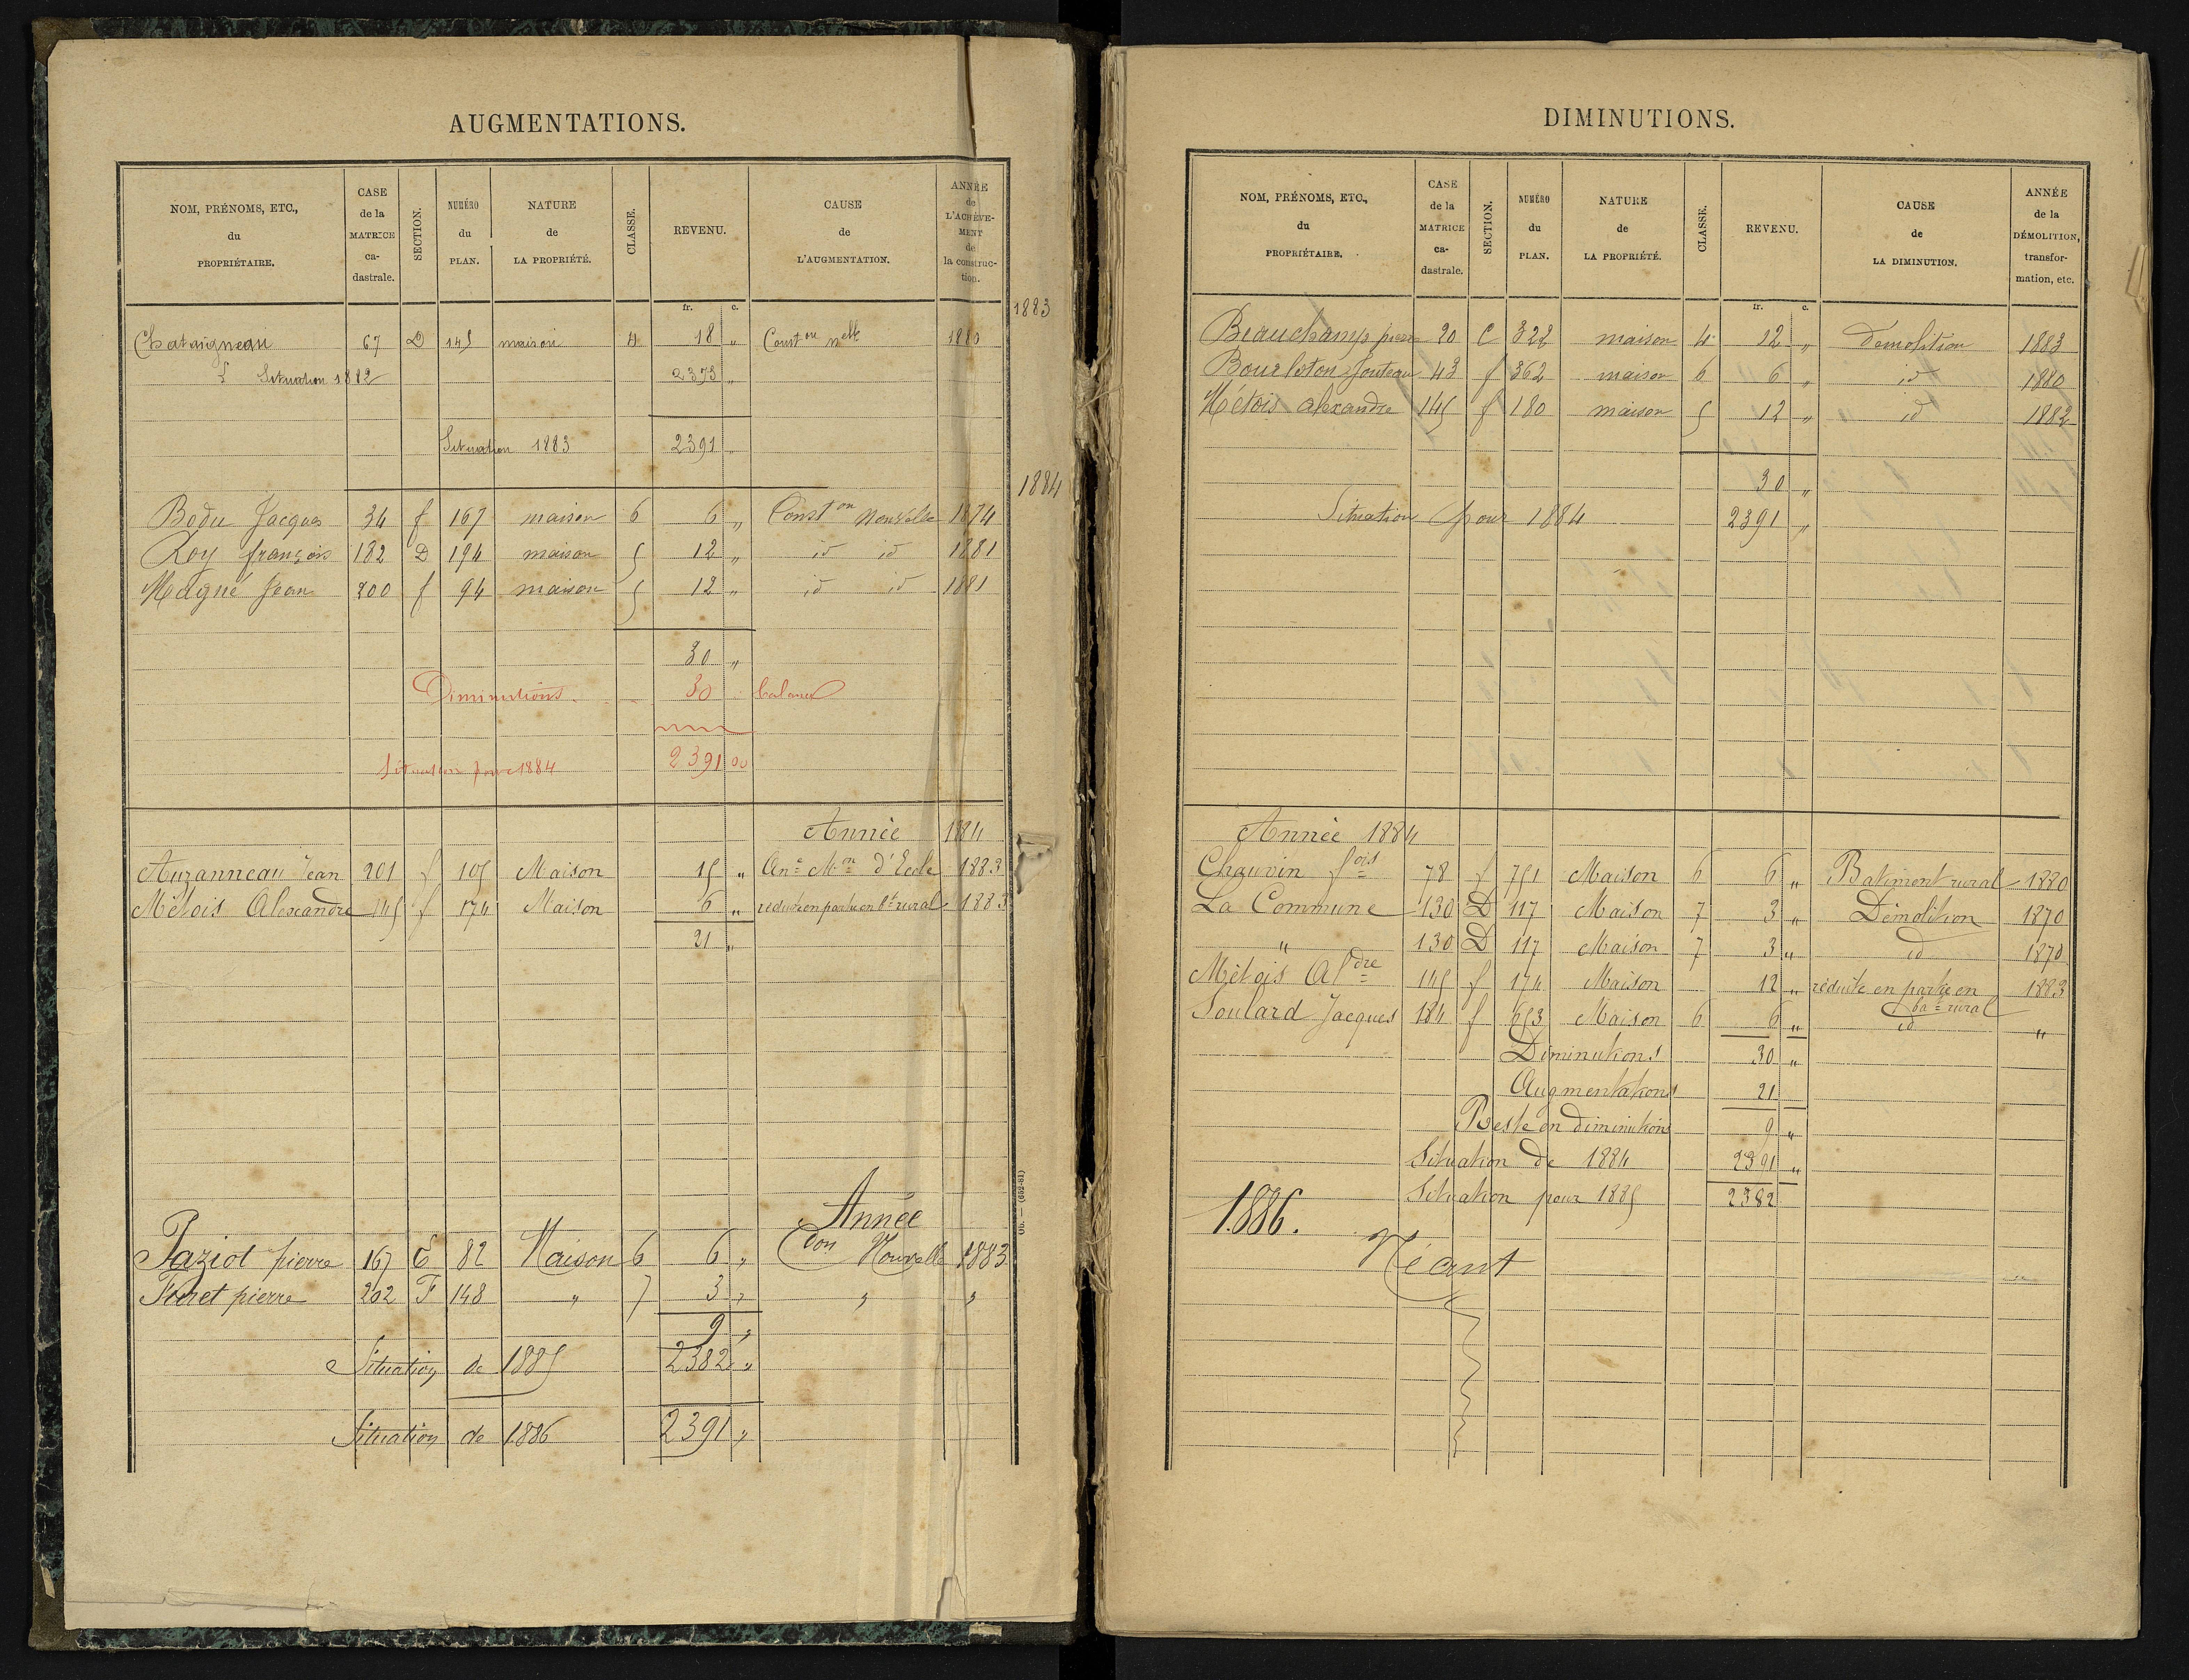 AUGMENTATIONS.
NOM, PRÉNOMS, ETC., du PROPRIÉTAIRE. CASE de la MATRICE ca- dastrale. SECTION. NUMÉRO du PLAN. NATURE de LA PROPRIÉTÉ. CLASSE. REVENU. CAUSE de L'AUGMENTATION. ANNÉE de L'ACHÈVE- MENT de la construc- tion.
fr. c.
1883
Chataigneau 67 D 145 maison 4 18 " Const on nelle 1880
Situation 1882 2373 "
Situation 1883 2391 "
1884
Bodu Jacques 34 f 167 maison 6 6 " Const on nouvelle 1874
Roy françois 182 D 194 maison 5 12 " id id 1881
Magné Jean 200 f 94 maison 5 12 " id id 1881
30 "
Diminutions. 30 balance
Situation pour 1884 2391 00
Année 1884
Auzanneau Jean 201 f 105 Maison 15 " An.e M.on d'Ecole 1883
Métois Alexandre 145 f 174 Maison 6 " réduite en partie en bt rural 1883
21 "
Année
Paziot pierre 167 E 82 Maison 6 6 " Con Nouvelle 1883
pierre 202 F 148 " 7 3 " " "
9 "
Situation de 1885 2382 "
Situation de 1886 2391 "
Ob. — (652-81)
DIMINUTIONS.
NOM, PRÉNOMS, ETC., du PROPRIÉTAIRE. CASE de la MATRICE ca- dastrale. SECTION. NUMÉRO du PLAN. NATURE de LA PROPRIÉTÉ. CLASSE. REVENU. CAUSE de LA DIMINUTION. ANNÉE de la DÉMOLITION, transfor- mation, etc.
fr. c.
Beauchamp pierre 20 C 322 maison 4 12 " demolition 1883
Bourloton Jouteau 43 f 362 maison 6 6 " id 1880
Métois alexandre 145 f 180 maison 5 12 " id 1882
30 "
Situation pour 1884 2391 "
Année 1884
Chauvin fois 78 f 751 Maison 6 6 " Batiment rural 1880
La Commune 130 D 117 Maison 7 3 " Démolition 1870
" 130 D 117 Maison 7 3 " id 1870
Métois Aldre 145 f 174 Maison 12 " réduite en partie en 1883
bat rural
Soulard Jacques 184 f 653 Maison 6 6 " id "
Diminutions 30 "
Augmentations 21
Reste en diminutions 9 "
Situation de 1884 2391 "
Situation pour 1885 2382
1886.
Néant